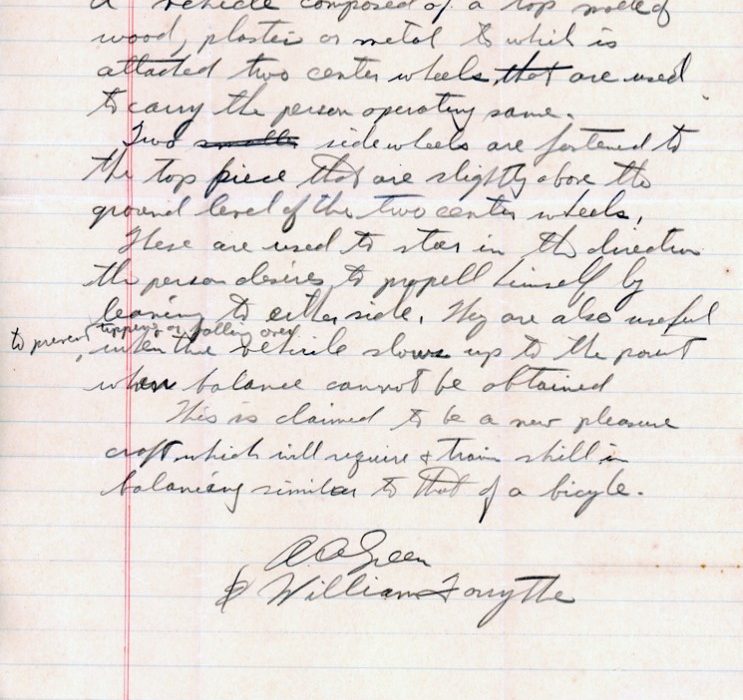 a vehicle composed of a top made of
wood, plastic or metal to which is
attached two center wheels, that are used
to carry the person operating same.
Two smaller sidewheels are fastened to
the top piece that are slightly above the
ground level of the two center wheels.
These are used to steer in the direction
the person desires to propell himself by
leaning to either side. They are also useful
to prevent tipping or falling over
when the vehicle slows up to the point
when balance cannot be obtained
This is claimed to be a new pleasure
craft which will require & train skill in
balancing similar to that of a bicycle.
A A Green
& William Forsythe